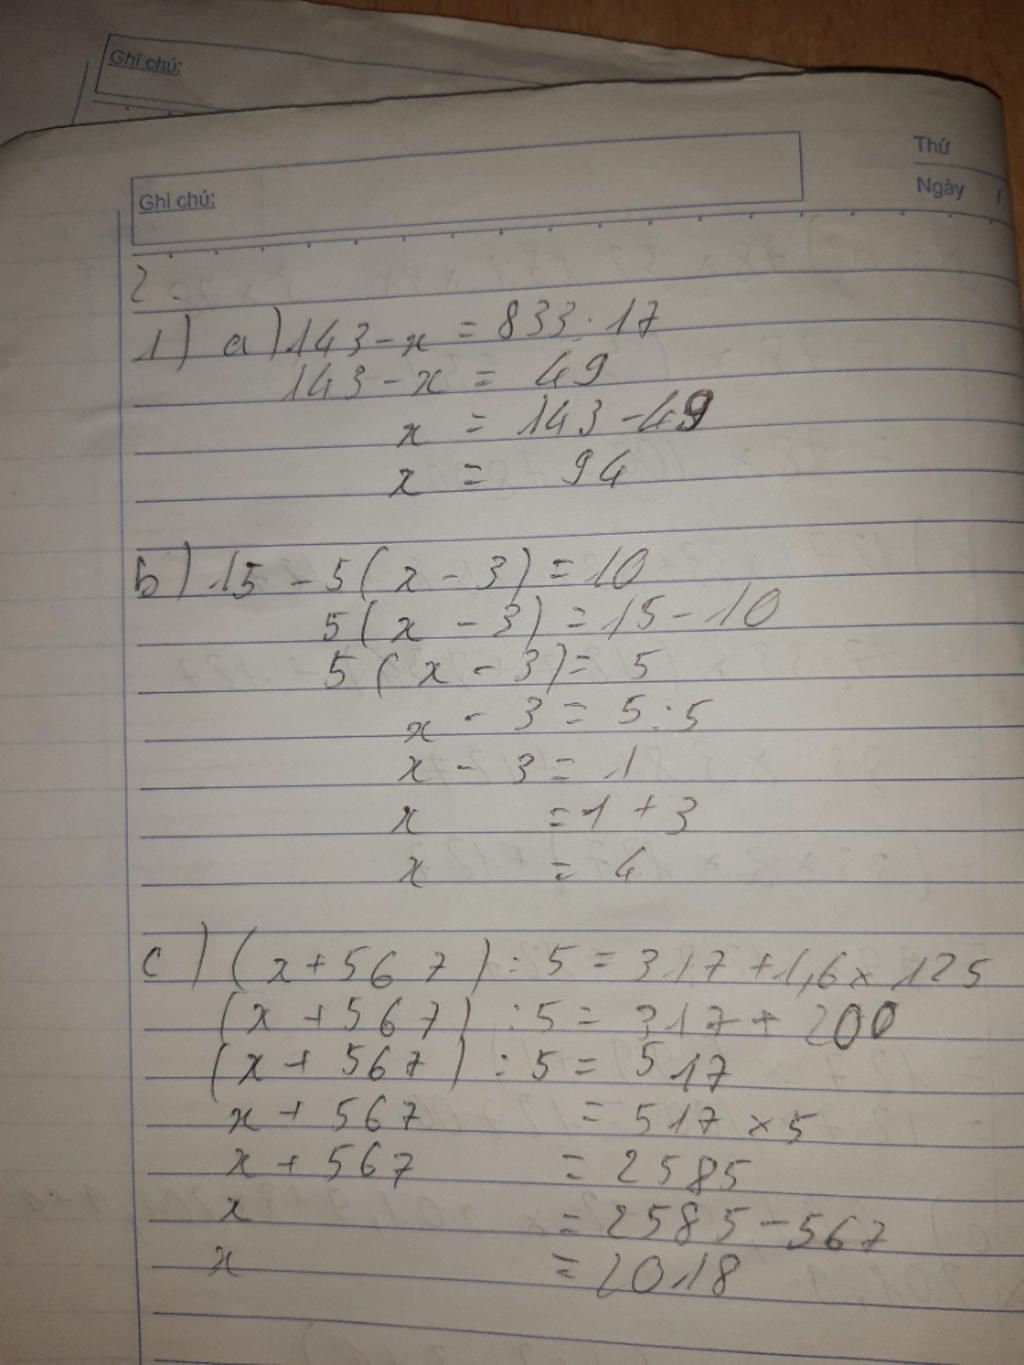 Ghi chú:
Thứ
Ghi chú:
Ngày
2.
1) a) 143 - x = 833 : 17
143 - x = 49
x = 143 - 49
x = 94
b) 15 - 5 ( x - 3 ) = 10
5 ( x - 3 ) = 15 - 10
5 ( x - 3 ) = 5
x - 3 = 5 : 5
x - 3 = 1
x = 1 + 3
x = 4
c) ( x + 567 ) : 5 = 317 + 1,6 x 125
( x + 567 ) : 5 = 317 + 200
( x + 567 ) : 5 = 517
x + 567 = 517 x 5
x + 567 = 2585
x = 2585 - 567
x = 2018